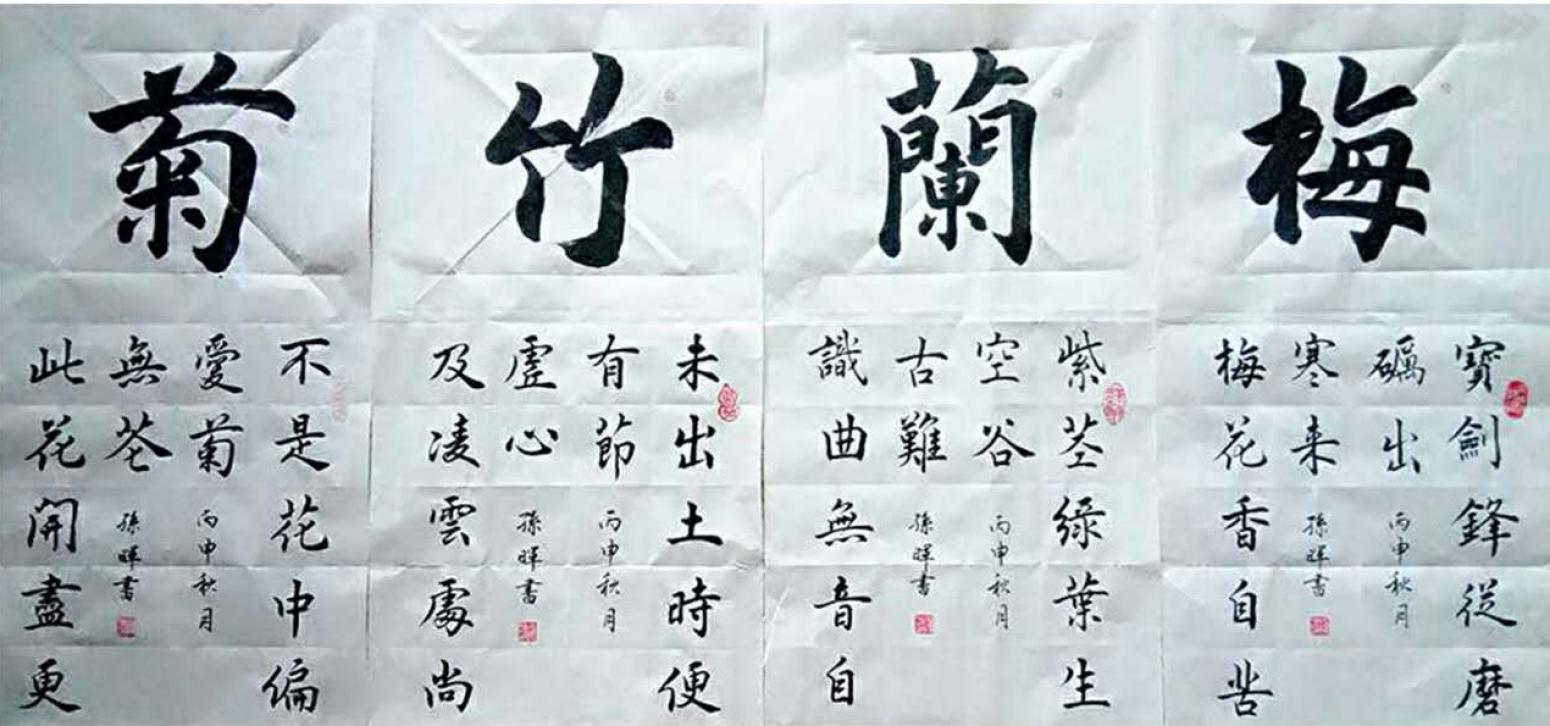 梅
寶劍鋒從磨
礪出
梅花香自苦
寒来
丙申秋月
孫暉書
蘭
紫茎綠葉生
空谷
識曲無音自
古難
丙申秋月
孫暉書
竹
未出土時便
有節
及凌雲處尚
虛心
丙申秋月
孫暉書
菊
不是花中偏
愛菊
此花開盡更
無花
丙申秋月
孫暉書